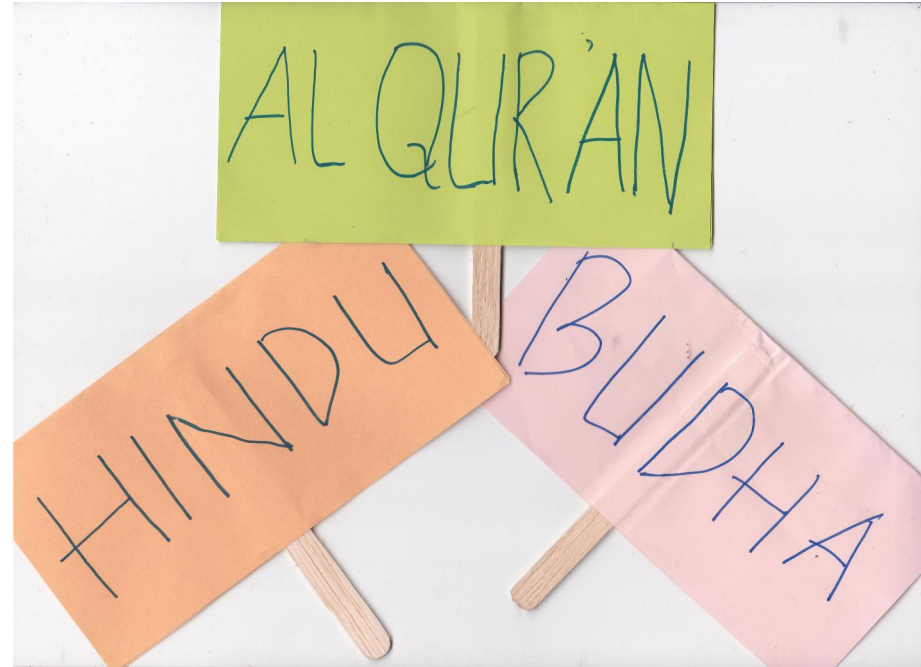 AL QUR'AN
HINDU
BUDHA